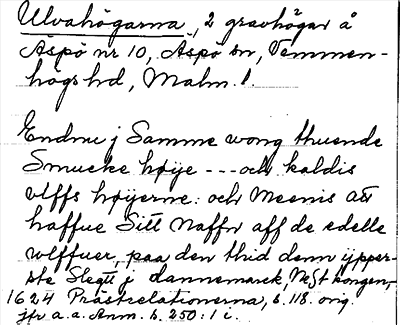 Ulvahögarna, 2 gravhögar å
Äspö nr 10, Äspö sn, Vemmen-
högs hd, Malm. l.
Endnu j Samme wong thuende
Smucke høÿe --- och kaldis
vlffs høÿerne: och Meenis att
haffue Sitt Naffn aff de edelle
wlffuer, paa den thid denn ÿpper-
ste Slegtt j dannemarck, Nest kongen,-
1624 Prästrelationerna, s. 118. orig.
jfr a.a. Anm. s. 250:1 i.